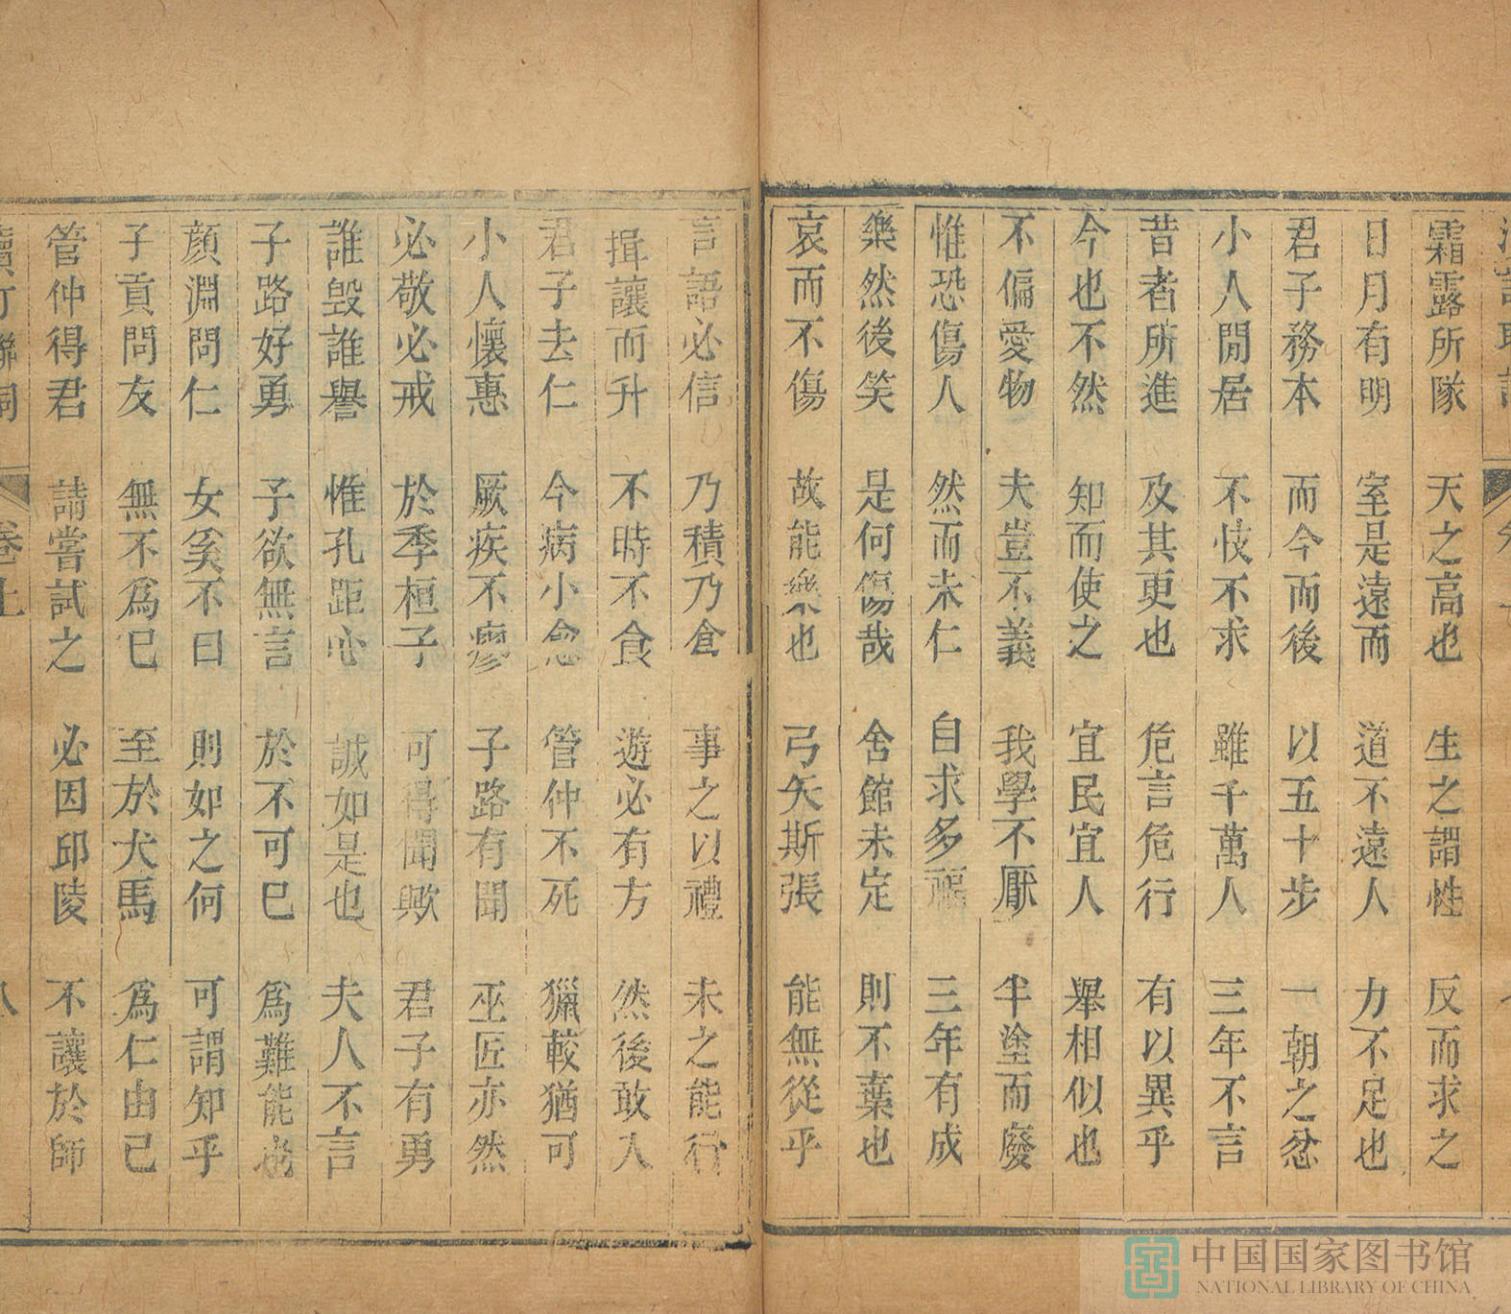 霜露所隊 天之高也 生之謂性 反而求之
日月有明 室是遠而 道不遠人 力不足也
君子務本 而今而後 以五十步 一朝之忿
小人閒居 不忮不求 雖千萬人 三年不言
昔者所進 及其更也 危言危行 有以異乎
今也不然 知而使之 宜民宜人 舉相似也
不偏愛物 夫豈不義 我學不厭 半塗而廢
惟恐傷人 然而未仁 自求多福 三年有成
樂然後笑 是何傷哉 舍館未定 則不棄也
哀而不傷 故能樂也 弓矢斯張 能無從乎
言語必信 乃積乃倉 事之以禮 未之能行
揖讓而升 不時不食 遊必有方 然後敢入
君子去仁 今病小愈 管仲不死 獵較猶可
小人懷惠 厥疾不瘳 子路有聞 巫匠亦然
必敬必戒 於季桓子 可得聞歟 君子有勇
誰毀誰譽 惟孔距心 誠如是也 夫人不言
子路好勇 子欲無言 於不可已 為難能也
顏淵問仁 女奚不曰 則如之何 可謂知乎
子貢問友 無不為已 至於犬馬 為仁由己
管仲得君 請嘗試之 必因邱陵 不讓於師
卷上
八
中国国家图书馆
NATIONAL LIBRARY OF CHINA